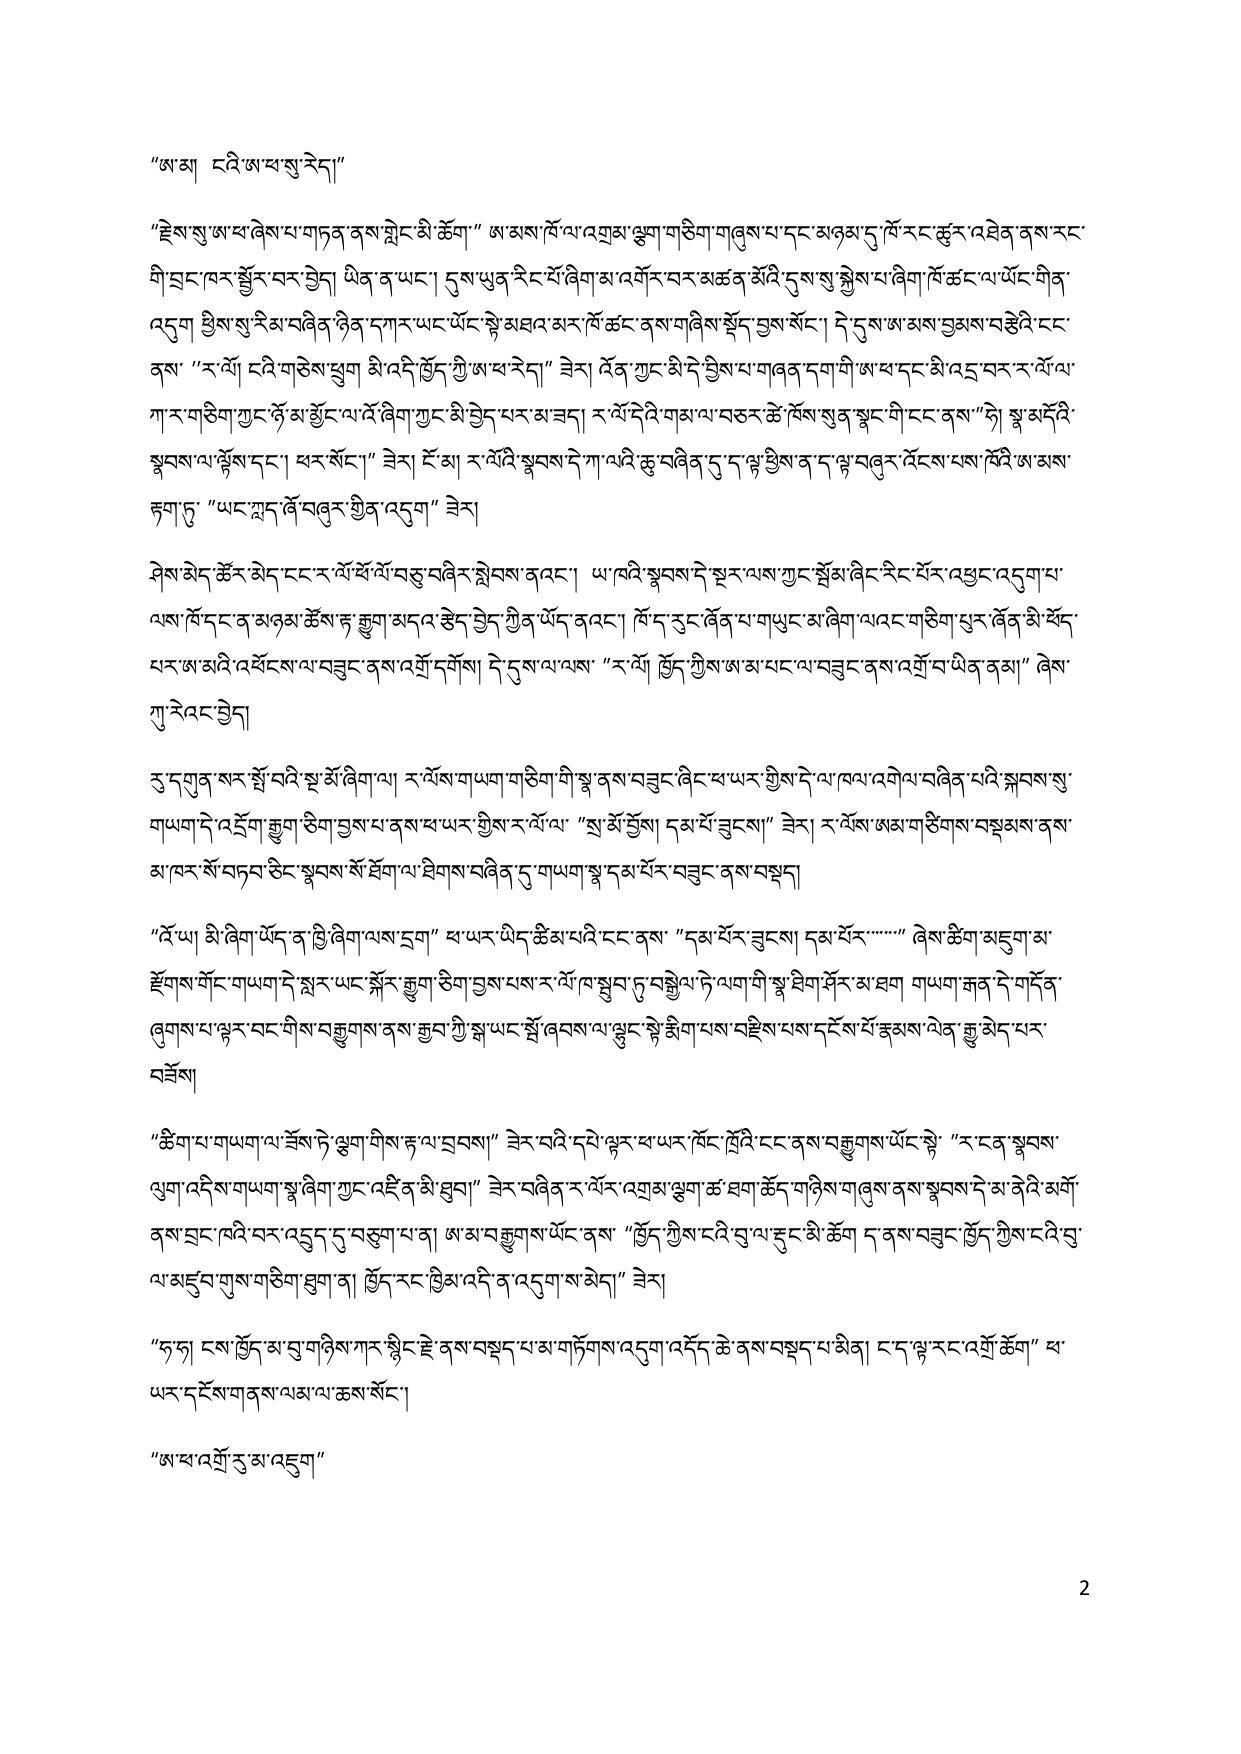 “ཨ་མ།  ངའི་ཨ་ཕ་སུ་རེད།”
“རྗེས་སུ་ཨ་ཕ་ཞེས་པ་གཏན་ནས་གླེང་མི་ཆོག་” ཨ་མས་ཁོ་ལ་འགྲམ་ལྕག་གཅིག་གཞུས་པ་དང་མཉམ་དུ་ཁོ་རང་ཚུར་འཐེན་ནས་རང་
གི་བྲང་ཁར་སྦྱོར་བར་བྱེད། ཡིན་ན་ཡང་། དུས་ཡུན་རིང་པོ་ཞིག་མ་འགོར་བར་མཚན་མོའི་དུས་སུ་སྐྱེས་པ་ཞིག་ཁོ་ཚང་ལ་ཡོང་གིན་
འདུག ཕྱིས་སུ་རིམ་བཞིན་ཉིན་དཀར་ཡང་ཡོང་སྟེ་མཐའ་མར་ཁོ་ཚང་ནས་གཞིས་སྡོད་བྱས་སོང་། དེ་དུས་ཨ་མས་བྱམས་བརྩེའི་ངང་
ནས་ ''ར་ལོ། ངའི་གཅེས་ཕྲུག མི་འདི་ཁྱོད་ཀྱི་ཨ་ཕ་རེད།” ཟེར། འོན་ཀྱང་མི་དེ་བྱིས་པ་གཞན་དག་གི་ཨ་ཕ་དང་མི་འདྲ་བར་ར་ལོ་ལ་
ཀ་ར་གཅིག་ཀྱང་ཉོ་མ་མྱོང་ལ་འོ་ཞིག་ཀྱང་མི་བྱེད་པར་མ་ཟད། ར་ལོ་དེའི་གམ་ལ་བཅར་ཚེ་ཁོས་སུན་སྣང་གི་ངང་ནས་“ཧེ། སྣ་མདོའི་
སྣབས་ལ་ལྟོས་དང་། ཕར་སོང་།” ཟེར། ངོ་མ། ར་ལོའི་སྣབས་དེ་ཀ་ལའི་ཆུ་བཞིན་དུ་ད་ལྟ་ཕྱིས་ན་ད་ལྟ་བཞུར་འོངས་པས་ཁོའི་ཨ་མས་
རྟག་ཏུ་ “ཡང་ཀླད་ཞོ་བཞུར་གྱིན་འདུག” ཟེར།
ཤེས་མེད་ཚོར་མེད་ངང་ར་ལོ་ཕོ་ལོ་བཅུ་བཞིར་སླེབས་ནའང་།  ཡ་ཁའི་སྣབས་དེ་སྔར་ལས་ཀྱང་སྦོམ་ཞིང་རིང་པོར་འཕྱང་འདུག་པ་
ལས་ཁོ་དང་ན་མཉམ་ཚོས་རྟ་རྒྱུག་མདའ་རྩེད་བྱེད་ཀྱིན་ཡོད་ནའང་། ཁོ་ད་རུང་ཞོན་པ་གཡུང་མ་ཞིག་ལའང་གཅིག་པུར་ཞོན་མི་ཕོད་
པར་ཨ་མའི་འཕོངས་ལ་བཟུང་ནས་འགྲོ་དགོས། དེ་དུས་ལ་ལས་ “ར་ལོ། ཁྱོད་ཀྱིས་ཨ་མ་པང་ལ་བཟུང་ནས་འགྲོ་བ་ཡིན་ནམ།” ཞེས་
ཀུ་རེའང་བྱེད།
རུ་དགུན་སར་སྤོ་བའི་སྔ་མོ་ཞིག་ལ། ར་ལོས་གཡག་གཅིག་གི་སྣ་ནས་བཟུང་ཞིང་ཕ་ཡར་གྱིས་དེ་ལ་ཁལ་འགེལ་བཞིན་པའི་སྐབས་སུ་
གཡག་དེ་འདྲོག་རྒྱུག་ཅིག་བྱས་པ་ནས་ཕ་ཡར་གྱིས་ར་ལོ་ལ་ “སྲ་མོ་བྱོས། དམ་པོ་ཟུངས།” ཟེར། ར་ལོས་ཨམ་གཙིགས་བསྡམས་ནས་
མ་ཁར་སོ་བཏབ་ཅིང་སྣབས་སོ་ཐོག་ལ་ཐིགས་བཞིན་དུ་གཡག་སྣ་དམ་པོར་བཟུང་ནས་བསྡད།
“འོ་ཡ། མི་ཞིག་ཡོད་ན་ཁྱི་ཞིག་ལས་དྲག” ཕ་ཡར་ཡིད་ཚིམ་པའི་ངང་ནས་ “དམ་པོར་ཟུངས། དམ་པོར་……” ཞེས་ཚིག་མཇུག་མ་
རྫོགས་གོང་གཡག་དེ་སླར་ཡང་སྐོར་རྒྱུག་ཅིག་བྱས་པས་ར་ལོ་ཁ་སྦུབ་ཏུ་བསྒྱེལ་ཏེ་ལག་གི་སྣ་ཐིག་ཤོར་མ་ཐག གཡག་རྒན་དེ་གདོན་
ཞུགས་པ་ལྟར་བང་གིས་བརྒྱུགས་ནས་རྒྱབ་ཀྱི་སྒ་ཡང་སྦོ་ཞབས་ལ་ལྷུང་སྟེ་རྨིག་པས་བརྫིས་པས་དངོས་པོ་རྣམས་ལེན་རྒྱུ་མེད་པར་
བཟོས།
“ཚིག་པ་གཡག་ལ་ཟོས་ཏེ་ལྕག་གིས་རྟ་ལ་བྲབས།” ཟེར་བའི་དཔེ་ལྟར་ཕ་ཡར་ཁོང་ཁྲོའི་ངང་ནས་བརྒྱུགས་ཡོང་སྟེ་ “ར་ངན་སྣབས་
ལུག་འདིས་གཡག་སྣ་ཞིག་ཀྱང་འཛིན་མི་ཐུབ།” ཟེར་བཞིན་ར་ལོར་འགྲམ་ལྕག་ཚ་ཐག་ཆོད་གཉིས་གཞུས་ནས་སྣབས་དེ་མ་ནེའི་མགོ་
ནས་བྲང་ཁའི་བར་འདྲུད་དུ་བཅུག་པ་ན། ཨ་མ་བརྒྱུགས་ཡོང་ནས་ “ཁྱོད་ཀྱིས་ངའི་བུ་ལ་རྡུང་མི་ཆོག ད་ནས་བཟུང་ཁྱོད་ཀྱིས་ངའི་བུ་
ལ་མཛུབ་གུས་གཅིག་ཐུག་ན། ཁྱོད་རང་ཁྱིམ་འདི་ན་འདུག་ས་མེད།” ཟེར།
“ཧ་ཧ། ངས་ཁྱོད་མ་བུ་གཉིས་ཀར་སྙིང་རྗེ་ནས་བསྡད་པ་མ་གཏོགས་འདུག་འདོད་ཆེ་ནས་བསྡད་པ་མིན། ང་ད་ལྟ་རང་འགྲོ་ཆོག” ཕ་
ཡར་དངོས་གནས་ལམ་ལ་ཆས་སོང་།
“ཨ་ཕ་འགྲོ་རུ་མ་འཇུག”
2